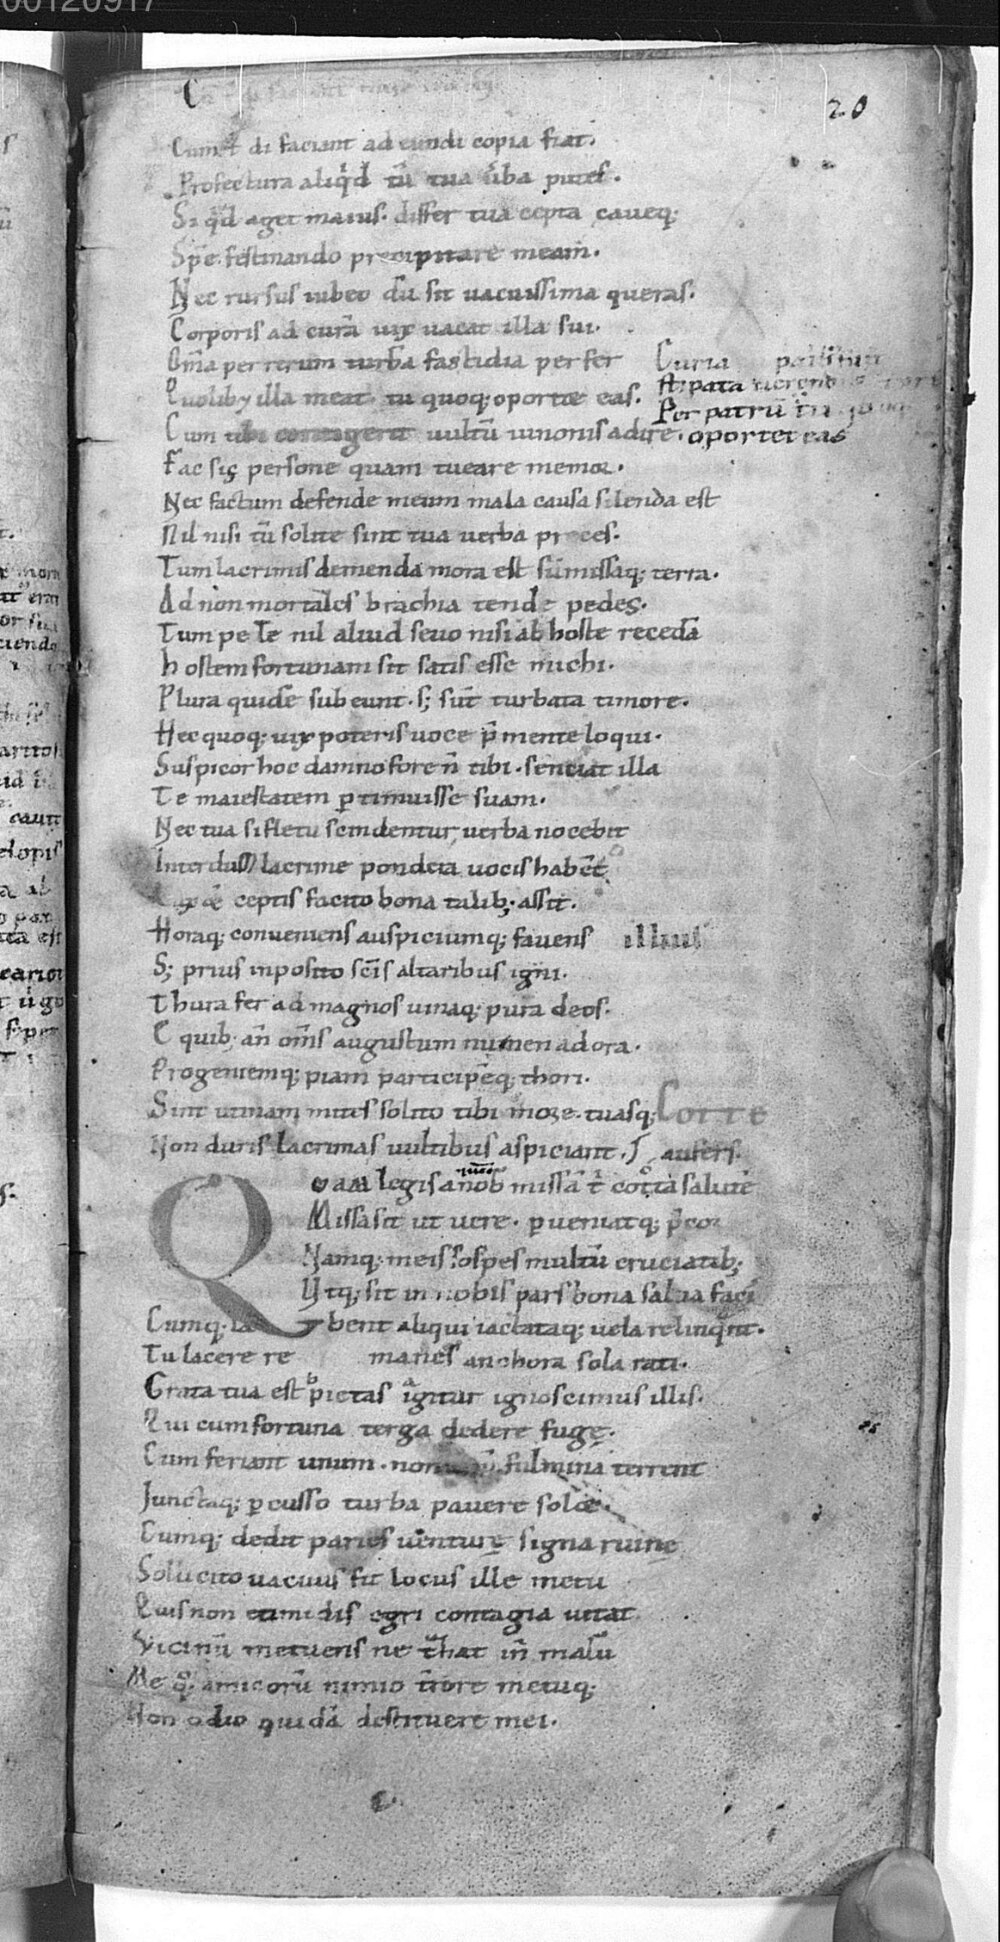 00120917
20
Cumq; di faciant ad eundi copia fiat.
Profectura aliq̇d tū tua ūba putes.
Si q̇d aget maius. differ tua cepta caveq;
Spē festinando precipitare meam.
Nec rursus iubeo dū sit uacuissima queras.
Corporis ad curā uix uacat illa sui.
Om̄a per rerum turba fastidia perfer
Quolibꝫ illa meat tu quoq; oportet eas.
Curia
stipata
Per patrū
oportet eas
Cum tibi contigerit uultū iunonis adire.
Fac sis persone quam tueare memor.
Nec factum defende meum mala causa silenda est
Nil nisi tū solite sint tua uerba preces.
Tum lacrimis demenda mora est sūmissaq; terra.
Ad non mortales brachia tende pedes.
Tum pete nil aliud seuo nisi ab hoste recedā
hostem fortunam sit satis esse michi.
Plura quidē subeunt. s; sūt turbata timore.
Hec quoq; uix poteris uoce p̄mente loqui.
Suspicor hoc damno fore n̄ tibi. senciat illa
Te maiestatem ꝑtimuisse suam.
Nec tua si fletu scindentur uerba nocebit
Interdum lacrime pondera uocis habēt
ceptis facito bona talibꝫ assit.
Horaq; conueniens auspiciumq; fauens
illius
S; prius inposito sc̄is altaribus igni.
Thura fer ad magnos uinaq; pura deos.
E quibꝫ an̄ om̄s augustum numen adora.
Progeniemq; piam participēq; thori.
Sint utinam mites solito tibi more. tuasq;
Non duris lacrimas uultibus aspiciant.
Quam legis a nob missā t̄ cotta salutē
Missa sit ut uere. ꝑueniatq; p̄cor
Namq; meis sospes multū cruciatibꝫ
Utq; sit in nobis pars bona salua facis
Cumq; labent aliqui iactataq; uela relinqūt.
Tu lacere remanes anchora sola rati.
Grata tua est pietas igitur ignoscimus illis.
Qui cum fortuna terga dedere fugę.
Cum feriant unum. non fulmina terrent
Junctaq; ꝑcusso turba pavere solet.
Cumq; dedit paries uenturę signa ruine
Sollicito uacuus fit locus ille metu
Quis non e timidis egri contagia uitat
Vicinū metuens ne t̄hat in̄ malū
Me q; amicorū nimio t̄rore metuq;
Non odio quidā destituere mei.